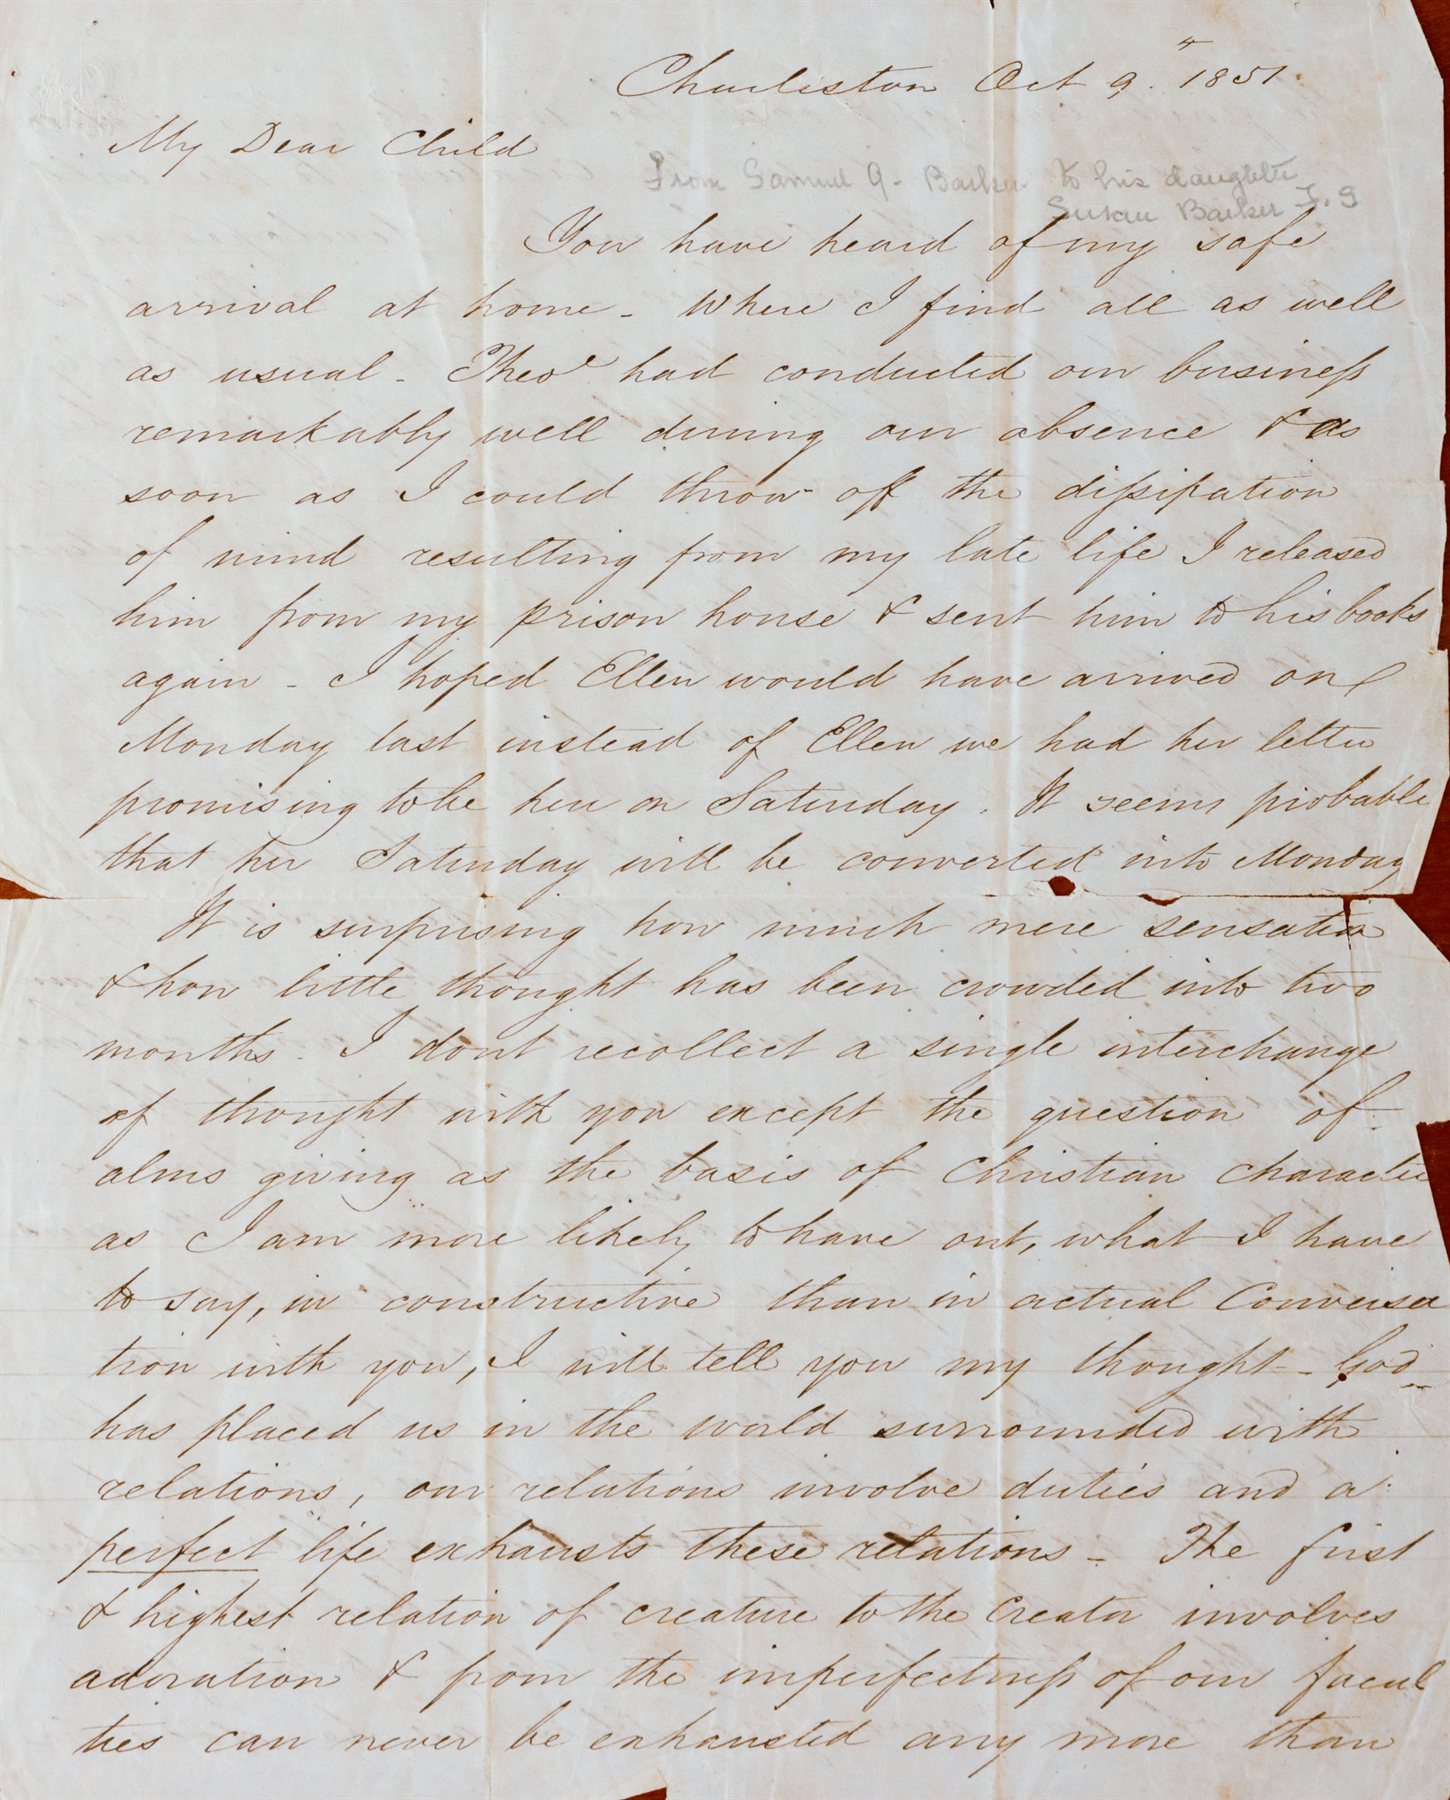 Charleston Oct 9. 1851.
My Dear Child
From Samuel G. Barker to his daughter
Susan Barker F. G
You have heard of my safe
arrival at home - Where I find all as well
as usual - Theo.e had conducted our business
remarkably well during our absence & as
soon as I could throw off the dissipation
of mind resulting from my late life I released
him from my prison house & sent him to his books
again - I hoped Ellen would have arrived on
Monday last instead of Ellen we had her letter
promising to be here on Saturday. It seems probable
that her Saturday will be converted into Monday
It is surprising how much mere sensation
& how little thought has been crowded into two
months - I dont recollect a single interchange
of thought with you except the question of
alms giving as the basis of Christian character
as I am more likely to have out, what I have
to say, in constructive than in actual Conversa
tion with you, I will tell you my thought - God
has placed us in the world surrounded with
relations, our relations involve duties and a
perfect life exhausts these relations - The first
& highest relation of creature to the Creator involves
adoration & from the imperfectness of our facul
ties can never be exhausted any more than